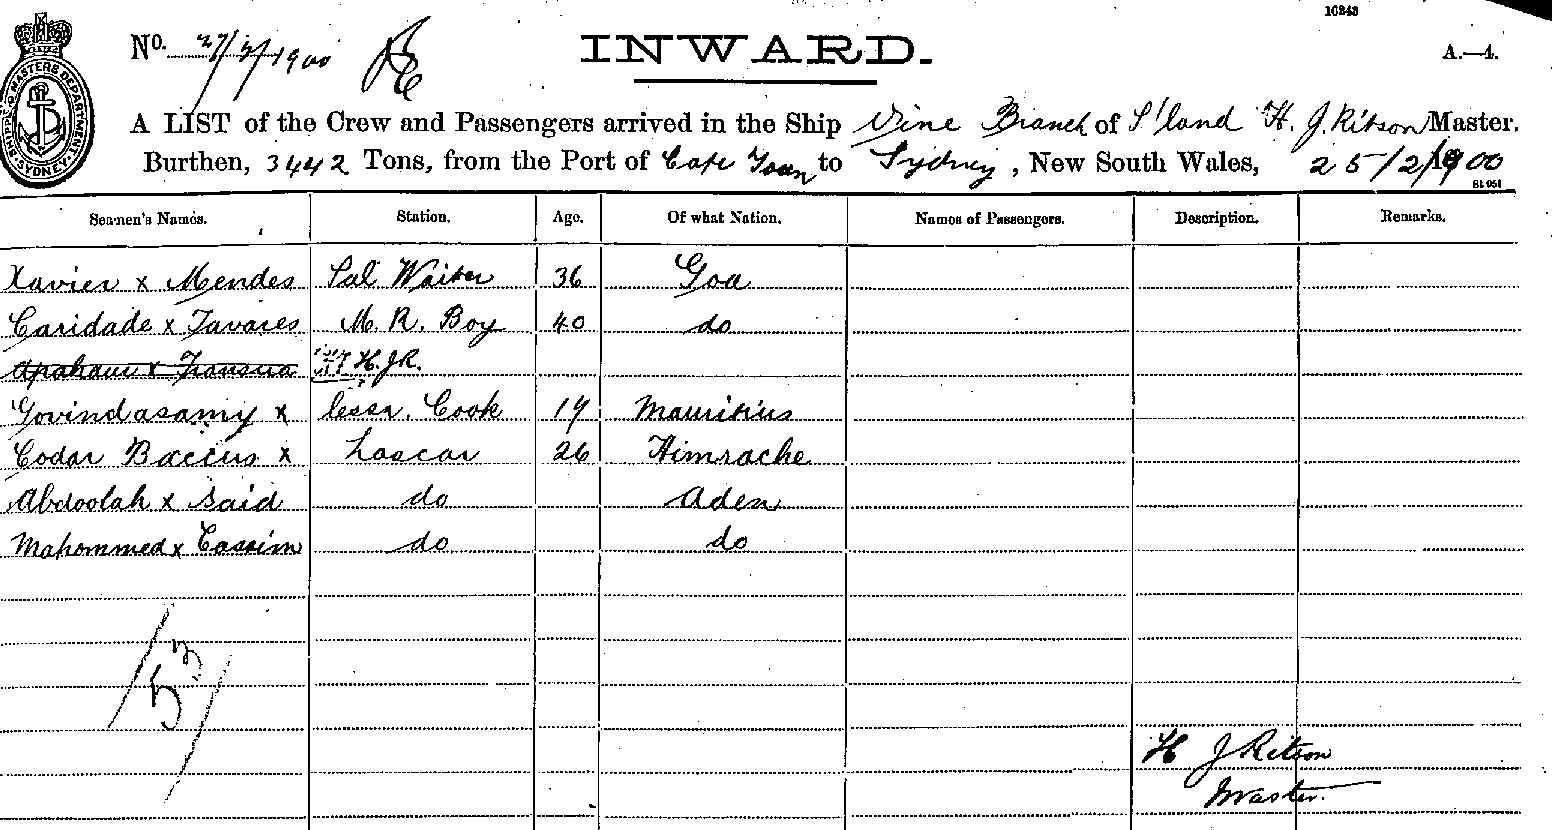 16243
No. 27/2/1900 INWARD. A.—4.
SHIPPING MASTERS DEPARTMENT SYDNEY
A LIST of the Crew and Passengers arrived in the Ship Vine Branch of S'land H. J. Ritson Master.
Burthen, 3442 Tons, from the Port of Cape Town to Sydney, New South Wales, 25/2/1900
Seamen's Names. Station. Age. Of what Nation. Names of Passengers. Description. Remarks.
Xavier x Mendes Sal Waiter 36 Goa
Caridade x Tavares M. R. Boy 40 do
H.J.R.
Govindasamy x Cook 19 Mauritius
Codar Baccus x Lascar 26 Himrache
Abdoolah x Said do Aden
Mahommed x Cassim do do
53
H J Ritson
Master.